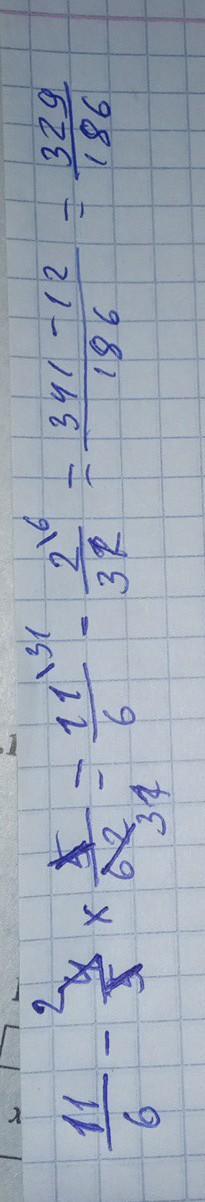 11/6 - 4/5 × 5/62 = 11/6 - 2/31 = 341-12/186 = 329/186